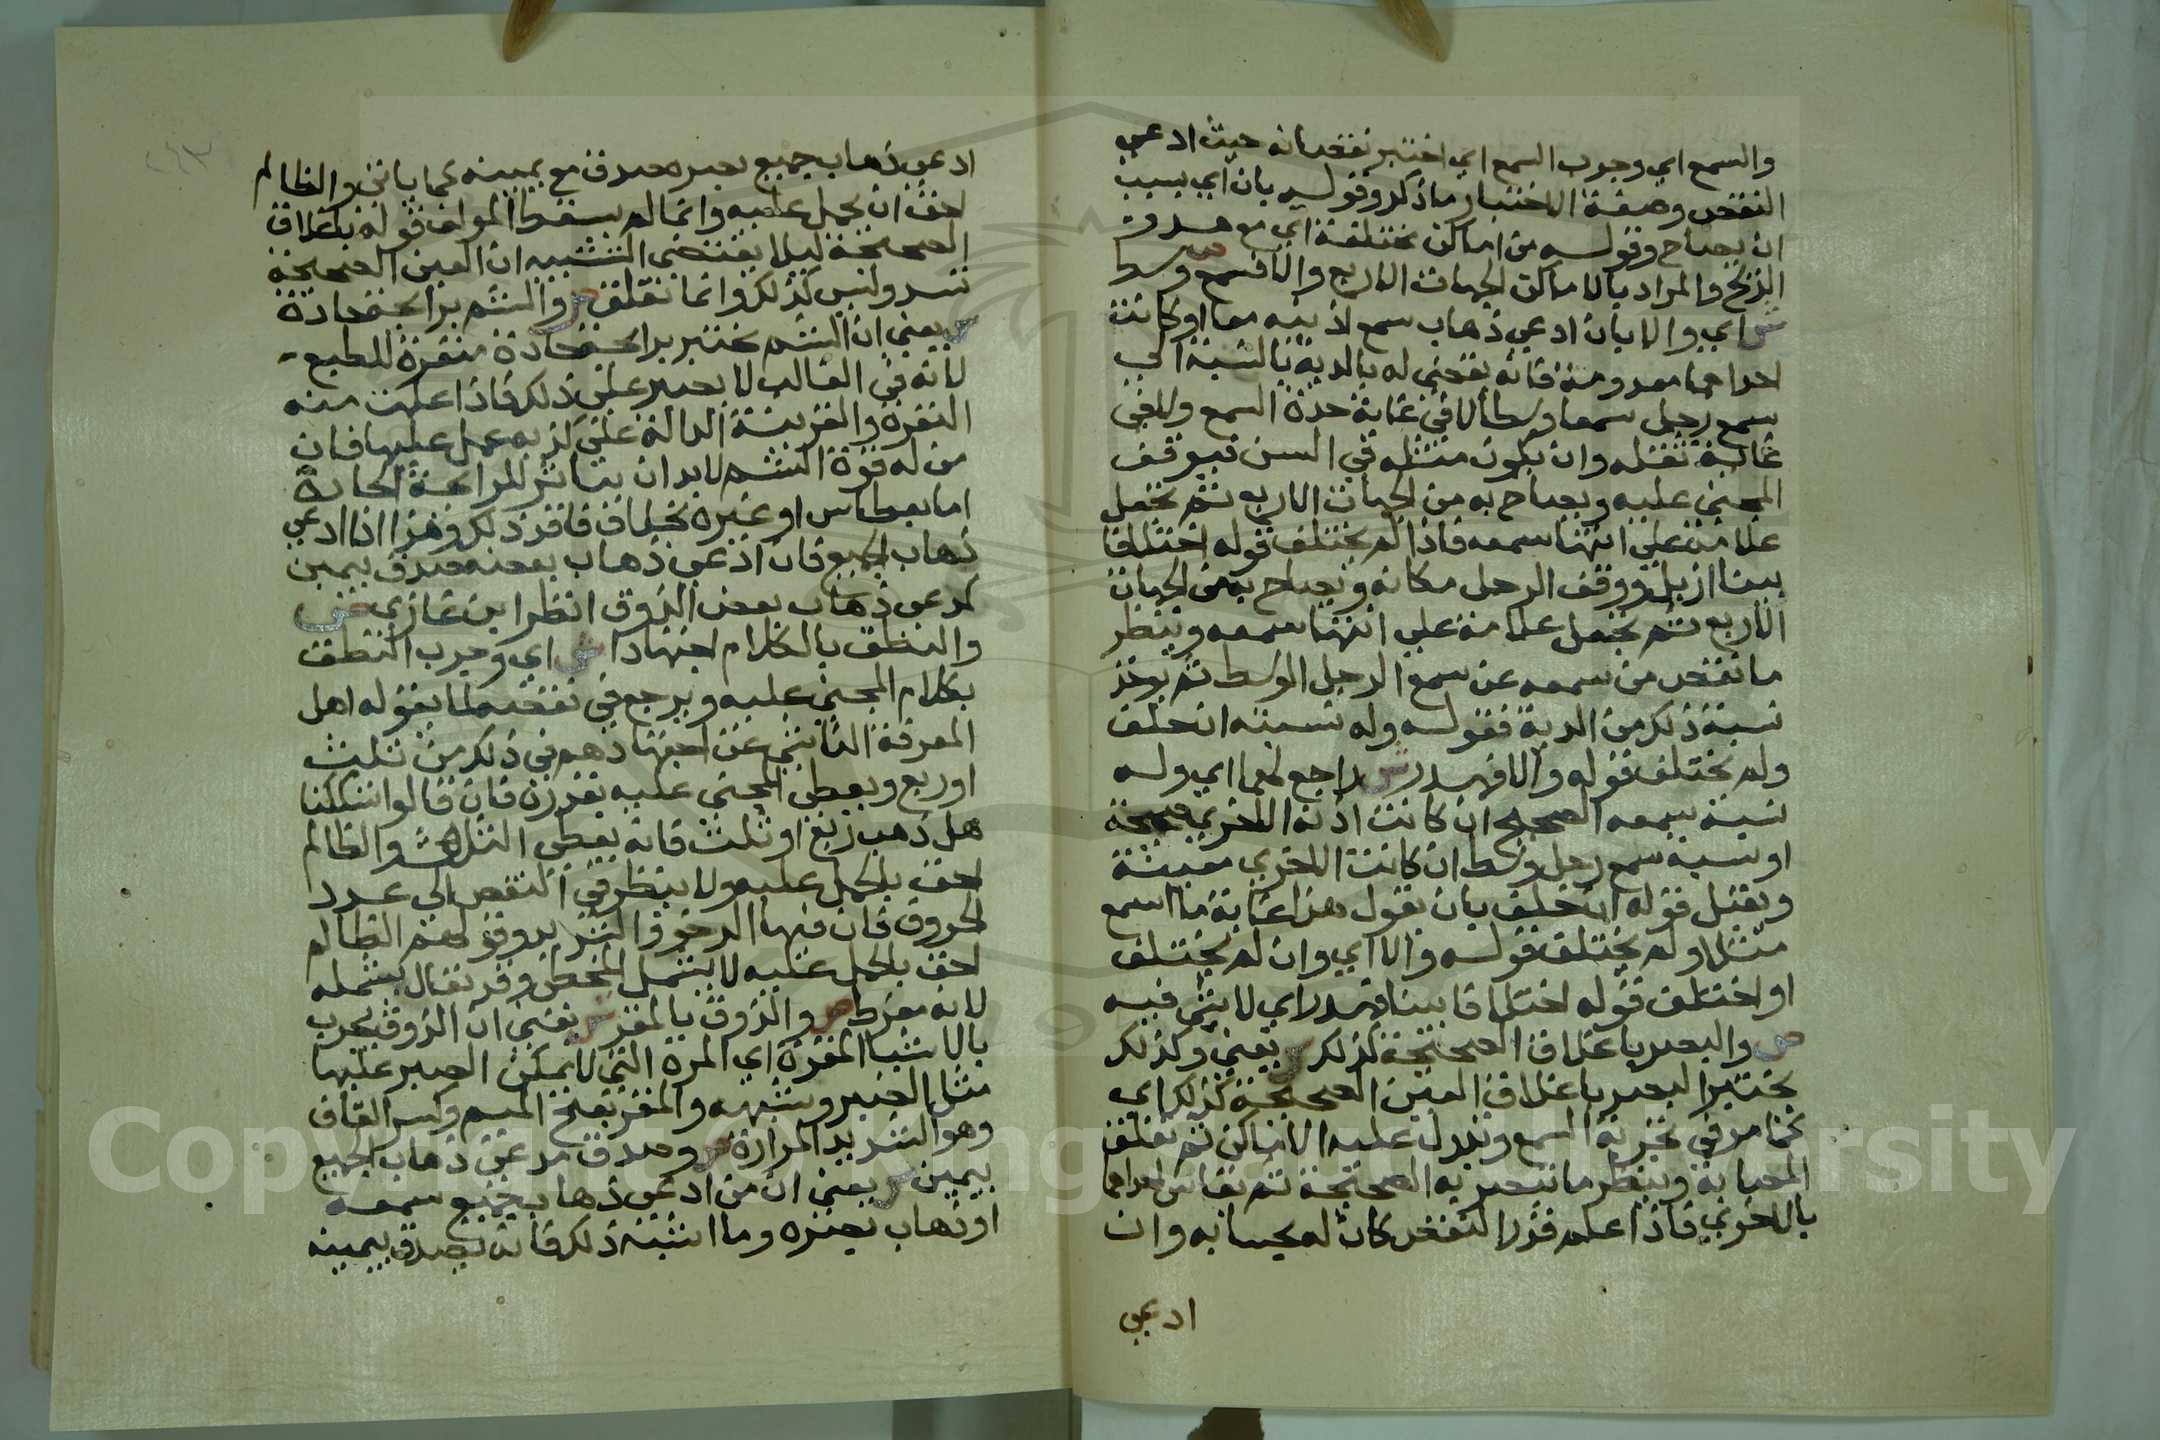 والسمع اي وجرب السمع اي اختبر نقصانه حيث ادعي
النقص وصفة الاختبار ما ذكر وقوله بان اي بسبب
ان يصاح وقوله من اماكن مختلفة اي مع هدو
الريح والمراد بالاماكن الجهات الاربع والا فسمع وسط
ش اي والا بان ادعي ذهاب سمع اذنيه معا او كانت
احداهما معدومة فانه يقضي له بالدية بالنسبة الي
سمع رجل سمعا وسطا لا في غاية حدة السمع ولا في
غاية ثقله وان يكون مثله في السن فيوقف
المجني عليه ويصاح به من الجهات الاربع ثم يجعل
علامة علي انتها سمعه فاذا لم يختلف قوله اختلافا
بينا ازيل ووقف الرجل مكانه ويصاح به من الجهات
الاربع ثم يجعل علامة علي انتها سمعه وينظر
ما نقص من سمعه عن سمع الرجل الوسط ثم يوخذ
نسبة ذلك من الدية فقوله وله نسبته ان حلف
ولم يختلف قوله والا فهدر ش راجع لهما اي وله
نسبة سمعه الصحيح ان كانت اذنه الاخري صحيحة
او نسبة سمع رجل وسط ان كانت الاخري
ويقبل قوله ان حلف بان يقول هذا غاية ما اسمع
مثلا ولم يختلف قوله والا اي وان لم يختلف
او اختلف قوله اختلافا بينا فهدر اي لا شي فيه
ص والبصر باغلاق الصحيحة كذلك ش يعني وكذلك
يختبر البصر باغلاق العين الصحيحة كذلك اي
كما مر في تجربة السمع وتبدل عليه الاماكن ثم تغلق
المصابة وينظر ما تبصر به الصحيحة ثم تقاس احداهما
بالاخري فاذا علم قدر النقص كان له بحسابه وان
ادعي
ادعي ذهاب جميع بصره صدق مع يمينه كما ياتي والظالم
احق ان يحمل عليه وانما لم يسقط المولف قوله باغلاق
الصحيحة ليلا يقتضي التشبيه ان العين الصحيحة
تسد وليس كذلك وانما تغلق ص والشم برايحة حادة
ش يعني ان الشم يختبر برايحة حادة منفرة للطبع
لانه في الغالب لا يصبر علي ذلك فاذا علمت منه
النفرة والقرينة الدالة علي كذبه عمل عليها فان
من له قوة الشم لابد ان يتاثر للرايحة الحادة
اما بعطاس او غيره بخلاف فاقد ذلك وهذا اذا ادعي
ذهاب الجميع فان ادعي ذهاب بعضه صدق بيمين
كمدعي ذهاب بعض الذوق انظر ابن غازي ص
والنطق بالكلام اجتهادا ش اي وجرب النطق
بكلام المجني عليه ويرجع في نقصه لما يقوله اهل
المعرفة الناشي عن اجتهادهم في ذلك من ثلث
او ربع ويعطي المجني عليه بقدره فان قالوا شككنا
هل ذهب ربع او ثلث فانه يعطي الثلث والظالم
احق بالحمل عليه ولا ينظر في النقص الي عدد
الحروف فان فيها الرخو والشديد وقولهم الظالم
احق بالحمل عليه لا يشمل المخطي وقد يقال يشمله
لانه مفرط ص والذوق بالمقر ش يعني ان الذوق يجرب
بالاشيا المقرة اي المرة التي لا يمكن الصبر عليها
مثل الصبر وشبهه والمقر بفتح الميم وكسر القاف
وهو الشديد المرارة ص وصدق مدعي ذهاب الجميع
بيمين ش يعني ان من ادعي ذهاب جميع سمعه
او ذهاب بصره وما اشبه ذلك فانه يصدق بيمينه
Copyright © King Saud University